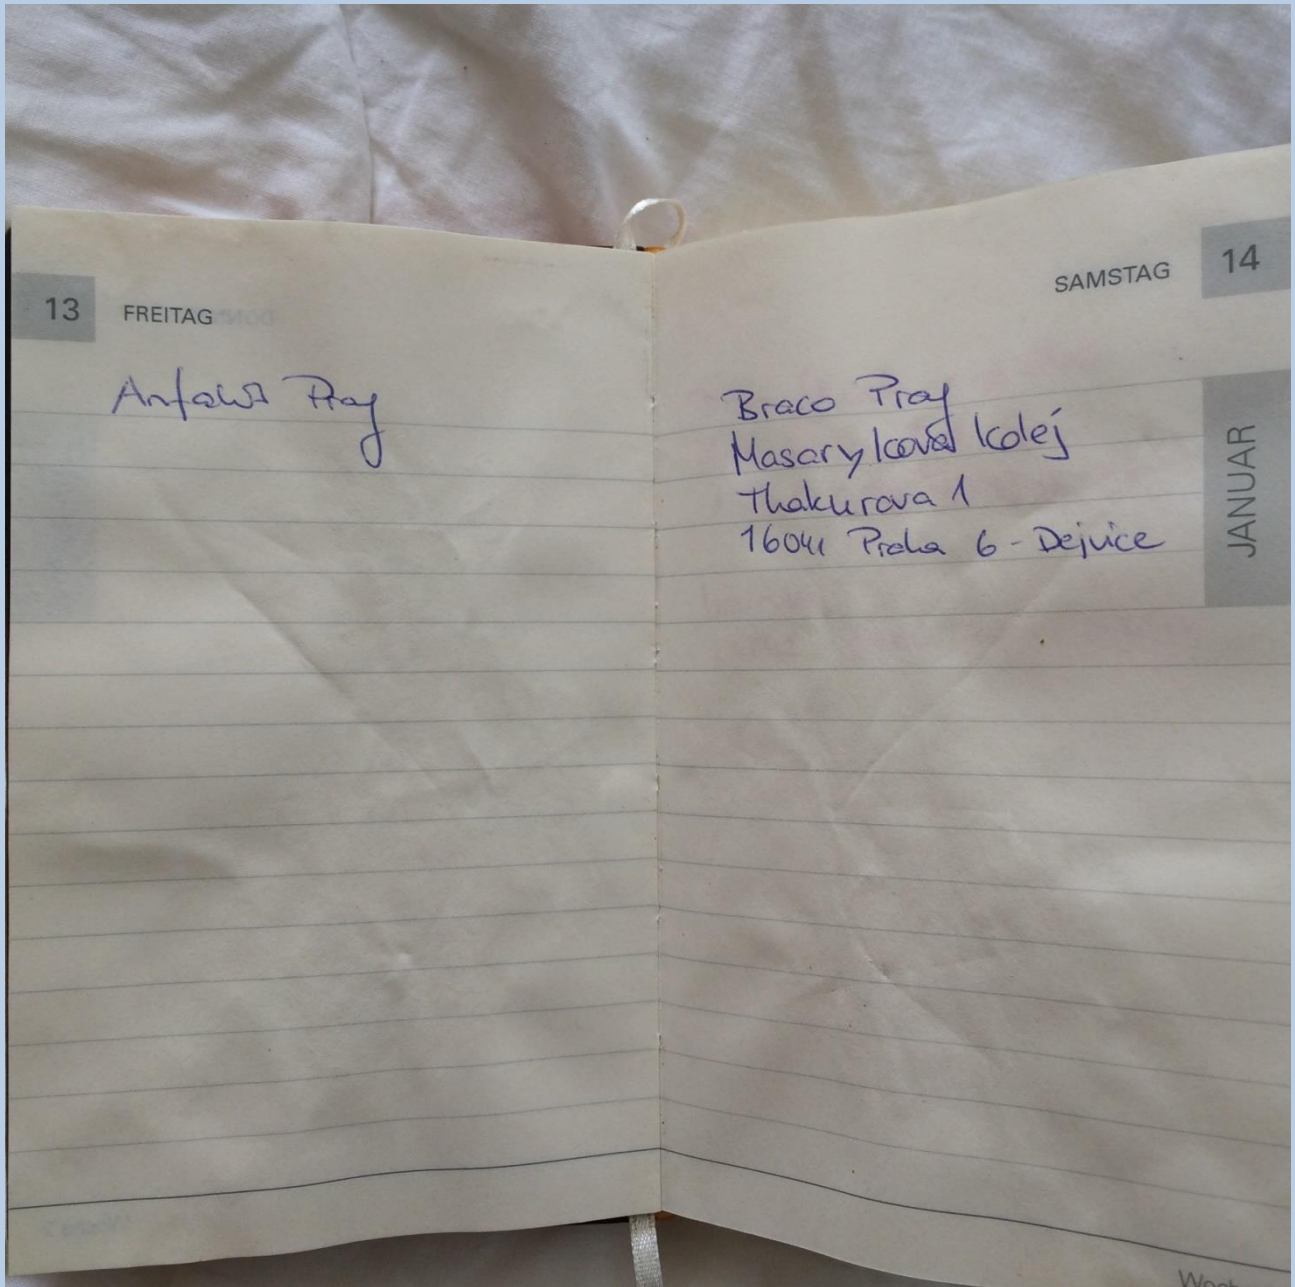 13 FREITAG
Anfahrt Prag
SAMSTAG 14
Braco Prag
Masarykova Kolej
Thakurova 1
16041 Praha 6 - Dejvice
JANUAR